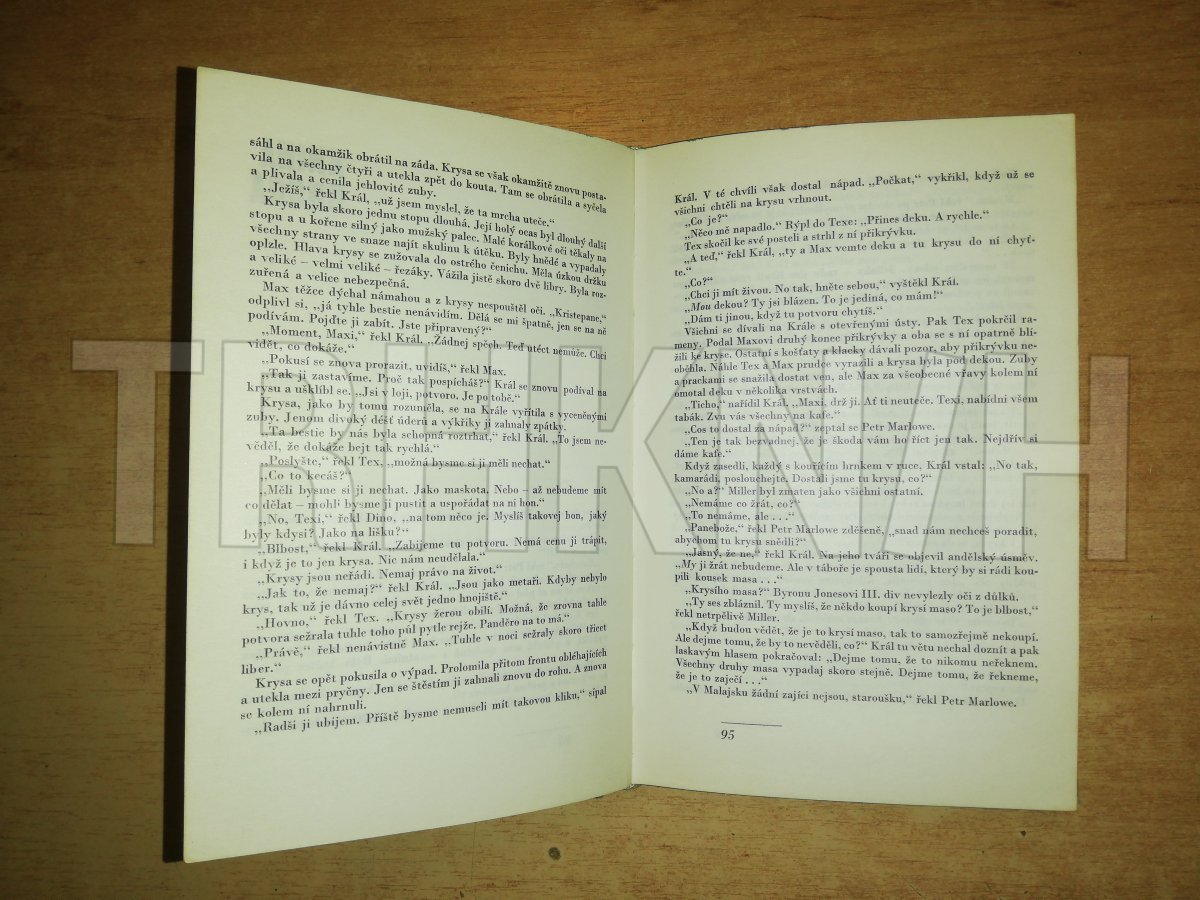 sáhl a na okamžik obrátil na záda. Krysa se však okamžitě znovu posta-
vila na všechny čtyři a utekla zpět do kouta. Tam se obrátila a syčela
a plivala a cenila jehlovité zuby.
„Ježíš,“ řekl Král, „už jsem myslel, že ta mrcha uteče.“
Krysa byla skoro jednu stopu dlouhá. Její holý ocas byl dlouhý další
stopu a u kořene silný jako mužský palec. Malé korálkové oči těkaly na
všechny strany ve snaze najít skulinu k útěku. Byly hnědé a vypadaly
oplzle. Hlava krysy se zužovala do ostrého čenichu. Měla úzkou držku
a veliké – velmi veliké – řezáky. Vážila jistě skoro dvě libry. Byla roz-
zuřená a velice nebezpečná.
Max těžce dýchal námahou a z krysy nespouštěl oči. „Kristepane,“
odplivl si, „já tyhle bestie nenávidím. Dělá se mi špatně, jen se na ně
podívám. Pojďte ji zabít. Jste připravený?“
„Moment, Maxi,“ řekl Král. „Žádnej spěch. Teď utéct nemůže. Chci
vidět, co dokáže.“
„Pokusí se znova prorazit, uvidíš,“ řekl Max.
„Tak ji zastavíme. Proč tak pospícháš?“ Král se znovu podíval na
krysu a ušklíbl se. „Jsi v loji, potvoro. Je po tobě.“
Krysa, jako by tomu rozuměla, se na Krále vyřítila s vyceněnými
zuby. Jenom divoký déšť úderů a výkřiky ji zahnaly zpátky.
„Ta bestie by nás byla schopná roztrhat,“ řekl Král. „To jsem ne-
věděl, že dokáže bejt tak rychlá.“
„Poslyšte,“ řekl Tex, „možná bysme si ji měli nechat.“
„Co to kecáš?“
„Měli bysme si ji nechat. Jako maskota. Nebo – až nebudeme mít
co dělat – mohli bysme ji pustit a uspořádat na ni hon.“
„No, Texi,“ řekl Dino, „na tom něco je. Myslíš takovej hon, jaký
byly kdysi? Jako na lišku?“
„Blbost,“ řekl Král. „Zabijeme tu potvoru. Nemá cenu ji trápit,
i když je to jen krysa. Nic nám neudělala.“
„Krysy jsou neřádi. Nemaj právo na život.“
„Jak to, že nemaj?“ řekl Král. „Jsou jako metaři. Kdyby nebylo
krys, tak už je dávno celej svět jedno hnojiště.“
„Hovno,“ řekl Tex. „Krysy žerou obilí. Možná, že zrovna tahle
potvora sežrala tuhle toho půl pytle rejže. Panděro na to má.“
„Právě,“ řekl nenávistně Max. „Tuhle v noci sežraly skoro třicet
liber.“
Krysa se opět pokusila o výpad. Prolomila přitom frontu obléhajících
a utekla mezi pryčny. Jen se štěstím ji zahnali znovu do rohu. A znova
se kolem ní nahrnuli.
„Radši ji ubijem. Příště bysme nemuseli mít takovou kliku,“ sípal
Král. V té chvíli však dostal nápad. „Počkat,“ vykřikl, když už se
všichni chtěli na krysu vrhnout.
„Co je?“
„Něco mě napadlo.“ Rýpl do Texe: „Přines deku. A rychle.“
Tex skočil ke své posteli a strhl z ní přikrývku.
„A teď,“ řekl Král, „ty a Max vemte deku a tu krysu do ní chyť-
te.“
„Co?“
„Chci ji mít živou. No tak, hněte sebou,“ vyštěkl Král.
„Mou dekou? Ty jsi blázen. To je jediná, co mám!“
„Dám ti jinou, když tu potvoru chytíš.“
Všichni se dívali na Krále s otevřenými ústy. Pak Tex pokrčil ra-
meny. Podal Maxovi druhý konec přikrývky a oba se s ní opatrně blí-
žili ke kryse. Ostatní s košťaty a klacky dávali pozor, aby přikrývku ne-
oběhla. Náhle Tex a Max prudce vyrazili a krysa byla pod dekou. Zuby
a prackami se snažila dostat ven, ale Max za všeobecné vřavy kolem ní
omotal deku v několika vrstvách.
„Ticho,“ nařídil Král. „Maxi, drž ji. Ať ti neuteče. Texi, nabídni všem
tabák. Zvu vás všechny na kafe.“
„Cos to dostal za nápad?“ zeptal se Petr Marlowe.
„Ten je tak bezvadnej, že je škoda vám ho říct jen tak. Nejdřív si
dáme kafe.“
Když zasedli, každý s kouřícím hrnkem v ruce, Král vstal: „No tak,
kamarádi, poslouchejte. Dostali jsme tu krysu, co?“
„No a?“ Miller byl zmaten jako všichni ostatní.
„Nemáme co žrát, co?“
„To nemáme, ale . . .“
„Panebože,“ řekl Petr Marlowe zděšeně, „snad nám nechceš poradit,
abychom tu krysu snědli?“
„Jasný, že ne,“ řekl Král. Na jeho tváři se objevil andělský úsměv.
„My ji žrát nebudeme. Ale v táboře je spousta lidí, který by si rádi kou-
pili kousek masa . . .“
„Krysího masa?“ Byronu Jonesovi III. div nevylezly oči z důlků.
„Ty ses zbláznil. Ty myslíš, že někdo koupí krysí maso? To je blbost,“
řekl netrpělivě Miller.
„Když budou vědět, že je to krysí maso, tak to samozřejmě nekoupí.
Ale dejme tomu, že by to nevěděli, co?“ Král tu větu nechal doznít a pak
laskavým hlasem pokračoval: „Dejme tomu, že to nikomu neřeknem.
Všechny druhy masa vypadaj skoro stejně. Dejme tomu, že řekneme,
že je to zaječí . . .“
„V Malajsku žádní zajíci nejsou, staroušku,“ řekl Petr Marlowe.
95
TRHKNIH